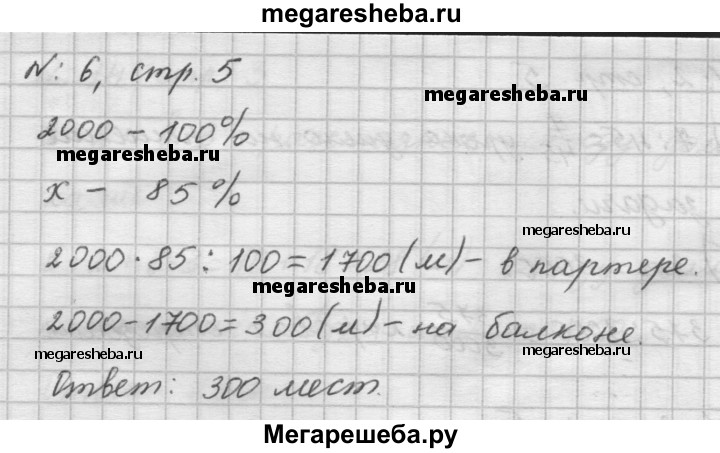 megaresheba.ru
№: 6, стр. 5
megaresheba.ru
2000 – 100%
megaresheba.ru
x – 85%
megaresheba.ru
2000·85:100=1700(м)– в партере.
megaresheba.ru
2000-1700=300(м)–на балконе.
megaresheba.ru
megaresheba.ru
Ответ: 300 мест.
Мегарешеба.ру